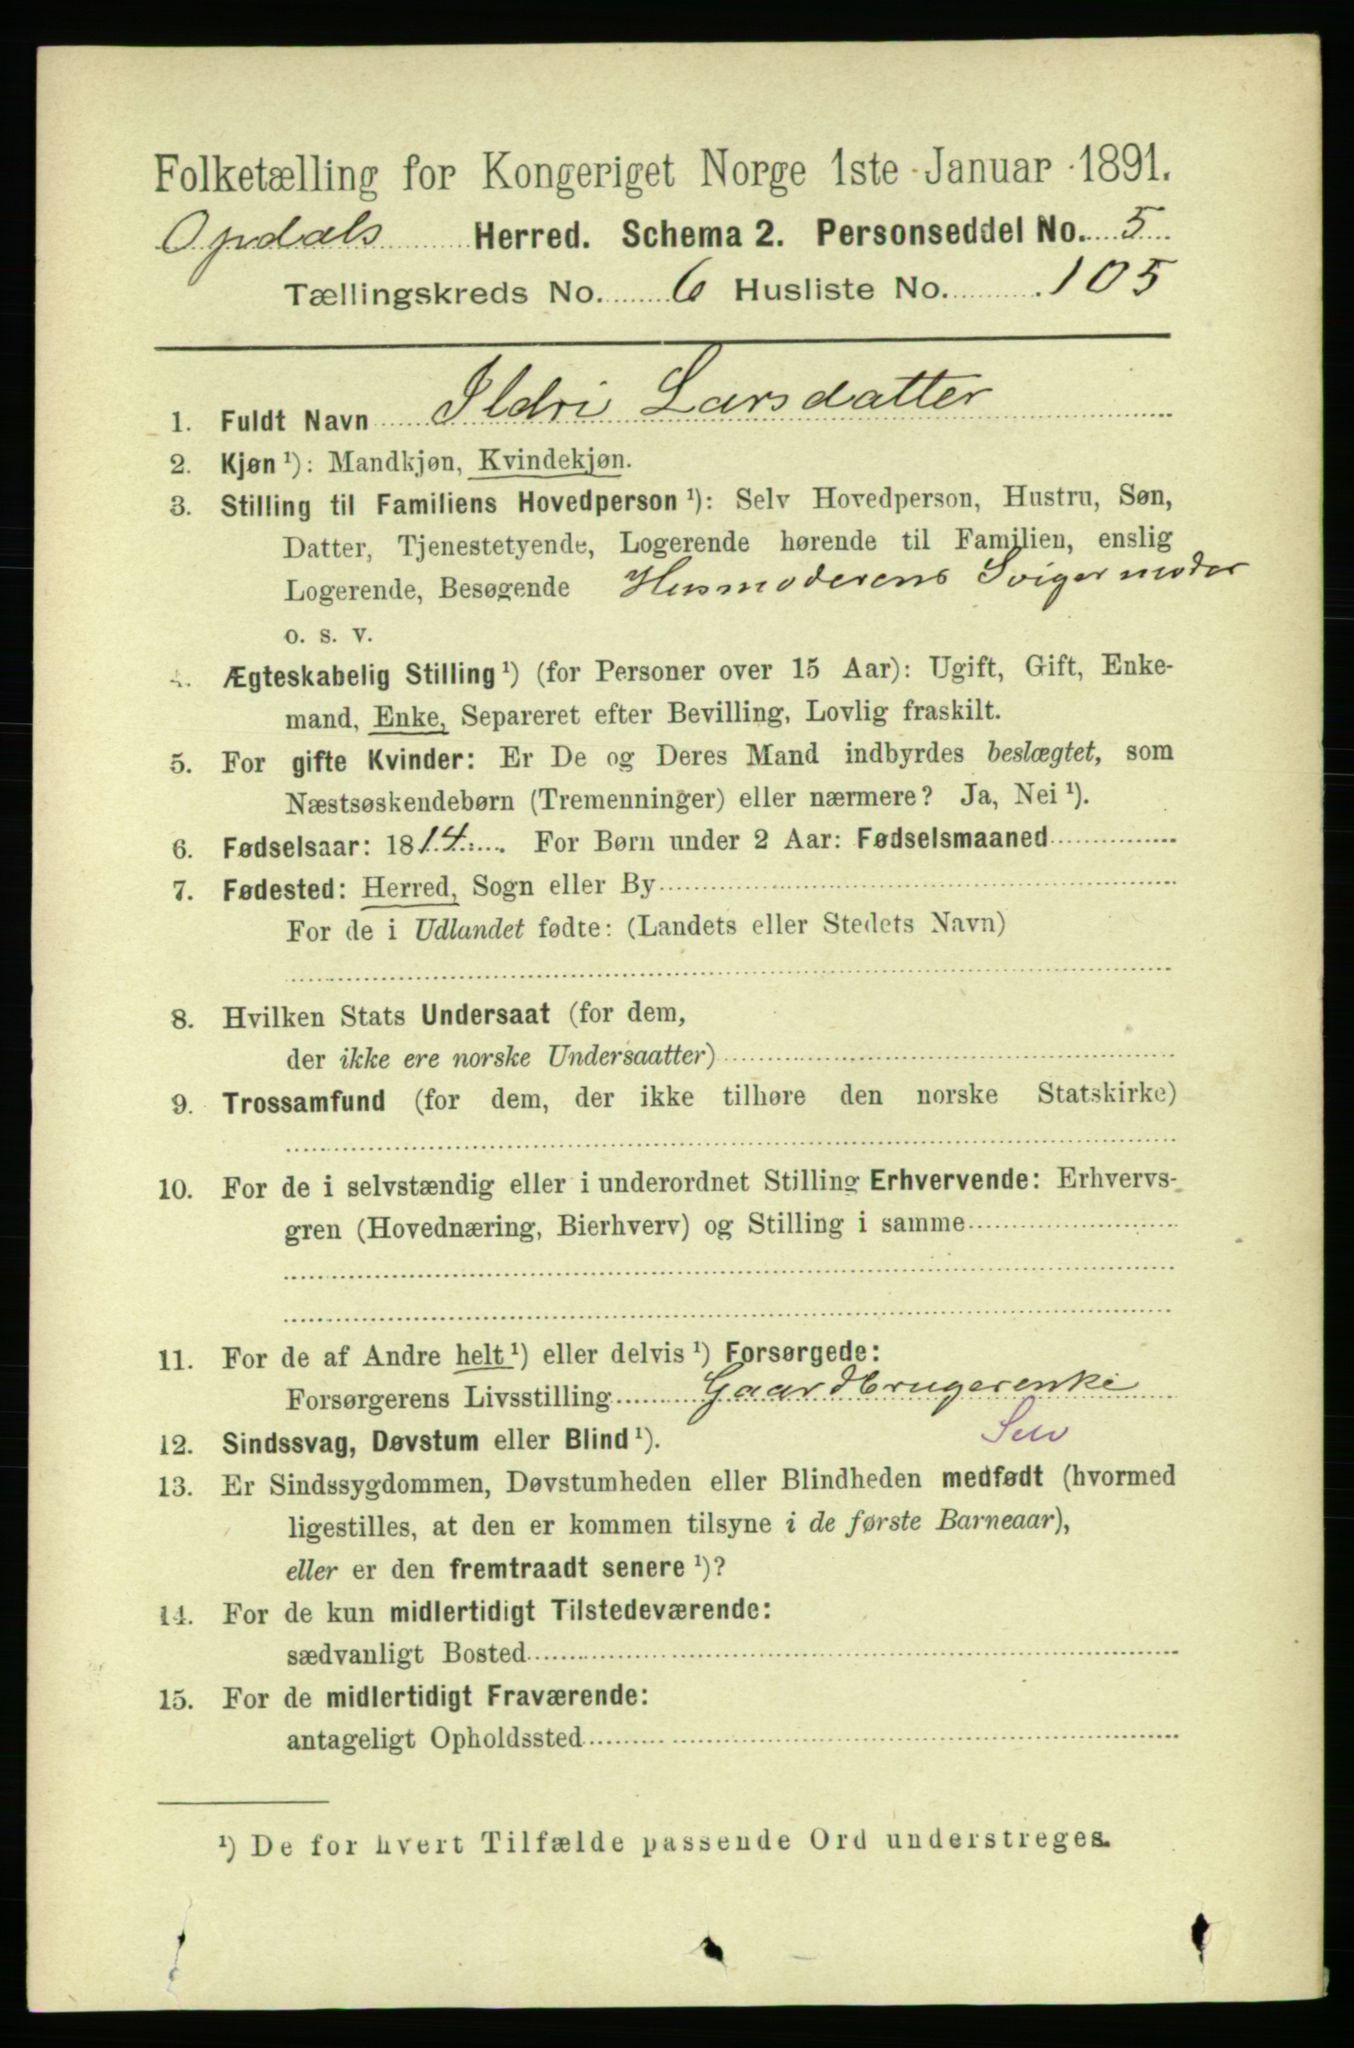 Folketælling for Kongeriget Norge 1ste Januar 1891.
Opdals Herred. Schema 2. Personseddel No. 5
Tællingskreds No. 6 Husliste No. 105
1. Fuldt Navn Ildri Larsdatter
2. Kjøn ¹): Mandkjøn, Kvindekjøn.
3. Stilling til Familiens Hovedperson ¹): Selv Hovedperson, Hustru, Søn,
Datter, Tjenestetyende, Logerende hørende til Familien, enslig
Logerende, Besøgende Husmoderens Svigermoder
o. s. v.
4. Ægteskabelig Stilling ¹) (for Personer over 15 Aar): Ugift, Gift, Enke-
mand, Enke, Separeret efter Bevilling, Lovlig fraskilt.
5. For gifte Kvinder: Er De og Deres Mand indbyrdes beslægtet, som
Næstsøskendebørn (Tremenninger) eller nærmere? Ja, Nei ¹).
6. Fødselsaar: 1814. For Børn under 2 Aar: Fødselsmaaned
7. Fødested: Herred, Sogn eller By
For de i Udlandet fødte: (Landets eller Stedets Navn)
8. Hvilken Stats Undersaat (for dem,
der ikke ere norske Undersaatter)
9. Trossamfund (for dem, der ikke tilhøre den norske Statskirke)
10. For de i selvstændig eller i underordnet Stilling Erhvervende: Erhvervs-
gren (Hovednæring, Bierhverv) og Stilling i samme
11. For de af Andre helt ¹) eller delvis ¹) Forsørgede:
Forsørgerens Livsstilling Gaardbrugerenke
Selv
12. Sindssvag, Døvstum eller Blind ¹).
13. Er Sindssygdommen, Døvstumheden eller Blindheden medfødt (hvormed
ligestilles, at den er kommen tilsyne i de første Barneaar),
eller er den fremtraadt senere ¹)?
14. For de kun midlertidigt Tilstedeværende:
sædvanligt Bosted
15. For de midlertidigt Fraværende:
antageligt Opholdssted
¹) De for hvert Tilfælde passende Ord understreges.